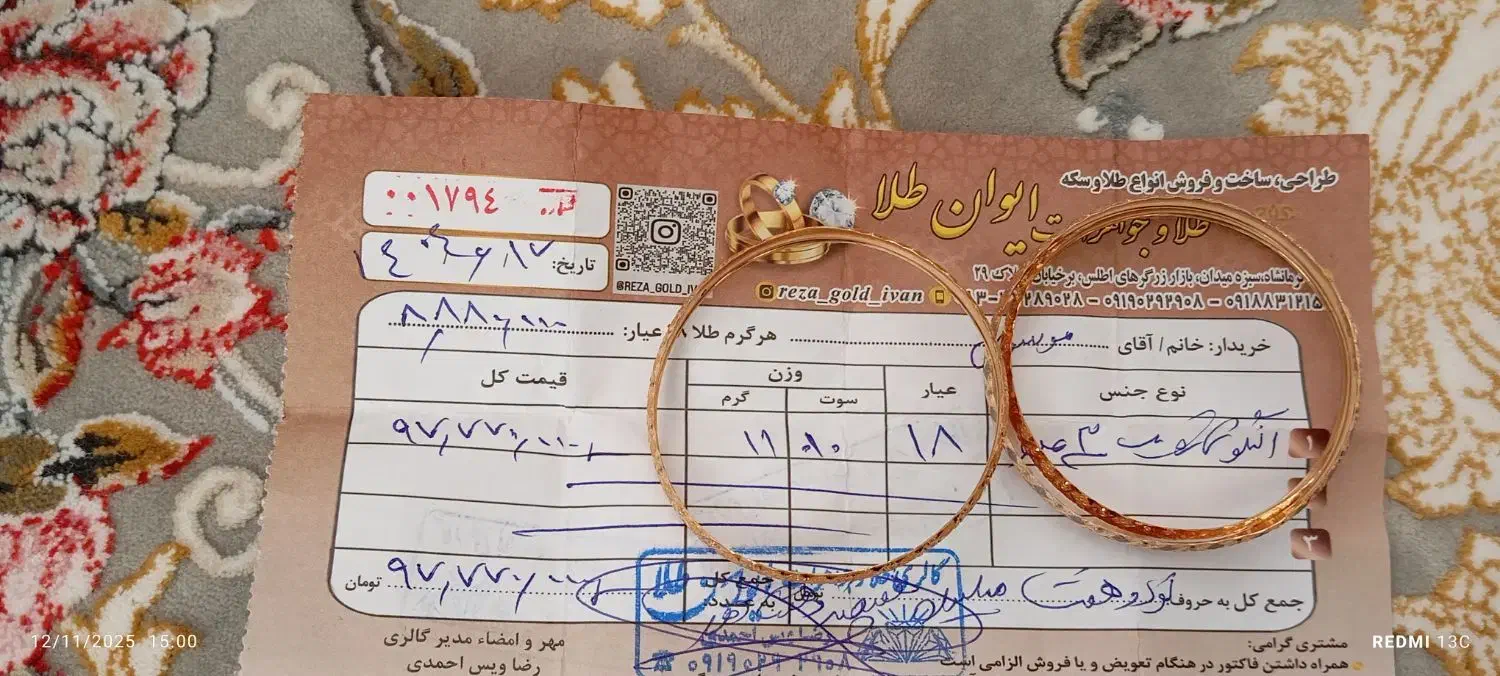 طراحی، ساخت و فروش انواع طلا و سکه
ایوان طلا
طلا و جواهرات
۰۰۱۷۹٤
تاریخ: ۱۴۰۴/۶/۱۷
@REZA_GOLD_IV
سبزه میدان، بازار زرگرهای اطلس، برخیابان، پلاک ۲۹
reza_gold_ivan
۰۹۱۸۸۳۱۲۱۵ – ۰۹۱۹۰۲۹۲۹۰۸ – ۲۸۹۰۲۸
خریدار: خانم / آقای
هرگرم طلا عیار: ۸,۸۸۸,۰۰۰
نوع جنس
عیار
وزن
سوت
گرم
قیمت کل
۱
النگو
۱۸
۱۱
۹۷,۷۷۰,۰۰۰
۳
جمع کل به حروف
نود و هفت میلیون
جمع کل به عدد:
۹۷,۷۷۰,۰۰۰
تومان
طلا
رضا ویس احمدی
۰۹۱۹۰۲۹۲۹۰۸
مشتری گرامی:
همراه داشتن فاکتور در هنگام تعویض و یا فروش الزامی است
مهر و امضاء مدیر گالری
رضا ویس احمدی
12/11/2025 15:00
REDMI 13C